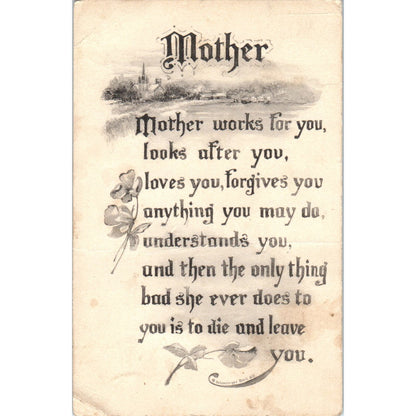 Mother
Mother works for you,
looks after you,
loves you, forgives you
anything you may do,
understands you,
and then the only thing
bad she ever does to
you is to die and leave
you.